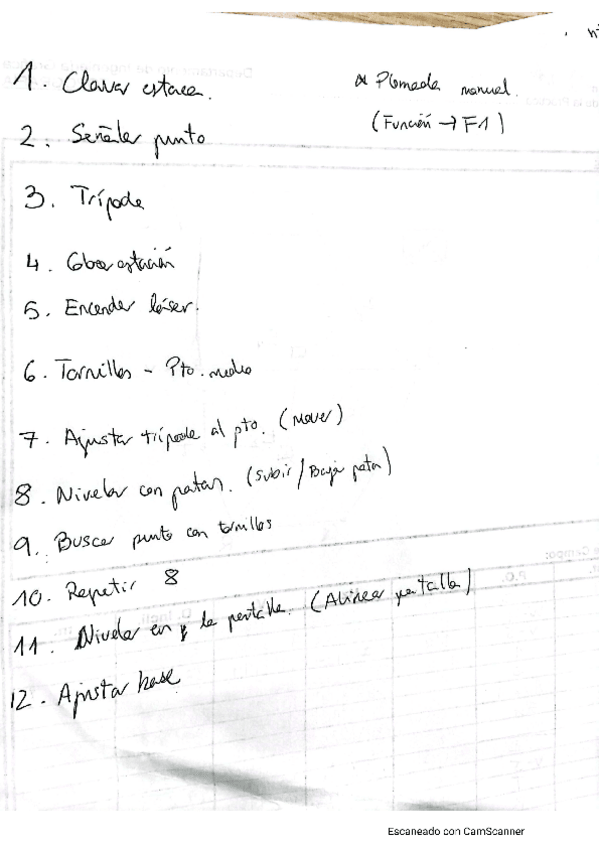 1. Clavar estaca.
* Plomada manual.
(Función → F1)
2. Señalar punto
3. Trípode
4. Colocar estación
5. Encender láser.
6. Tornillos - Pto. medio
7. Ajustar trípode al pto. (mover)
8. Nivelar con patas. (Subir/Bajar patas)
9. Buscar punto con tornillos
10. Repetir 8
11. Nivelar en la pantalla. (Alinear pantalla)
12. Ajustar base
Escaneado con CamScanner